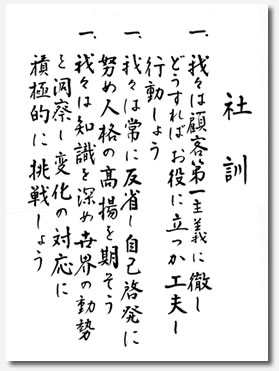 社訓
一、我々は顧客第一主義に徹し
どうすればお役に立つか工夫し
行動しよう
一、我々は常に反省し自己啓発に
努め人格の高揚を期そう
一、我々は知識を深め世界の動勢
を洞察し変化の対応に
積極的に挑戦しよう